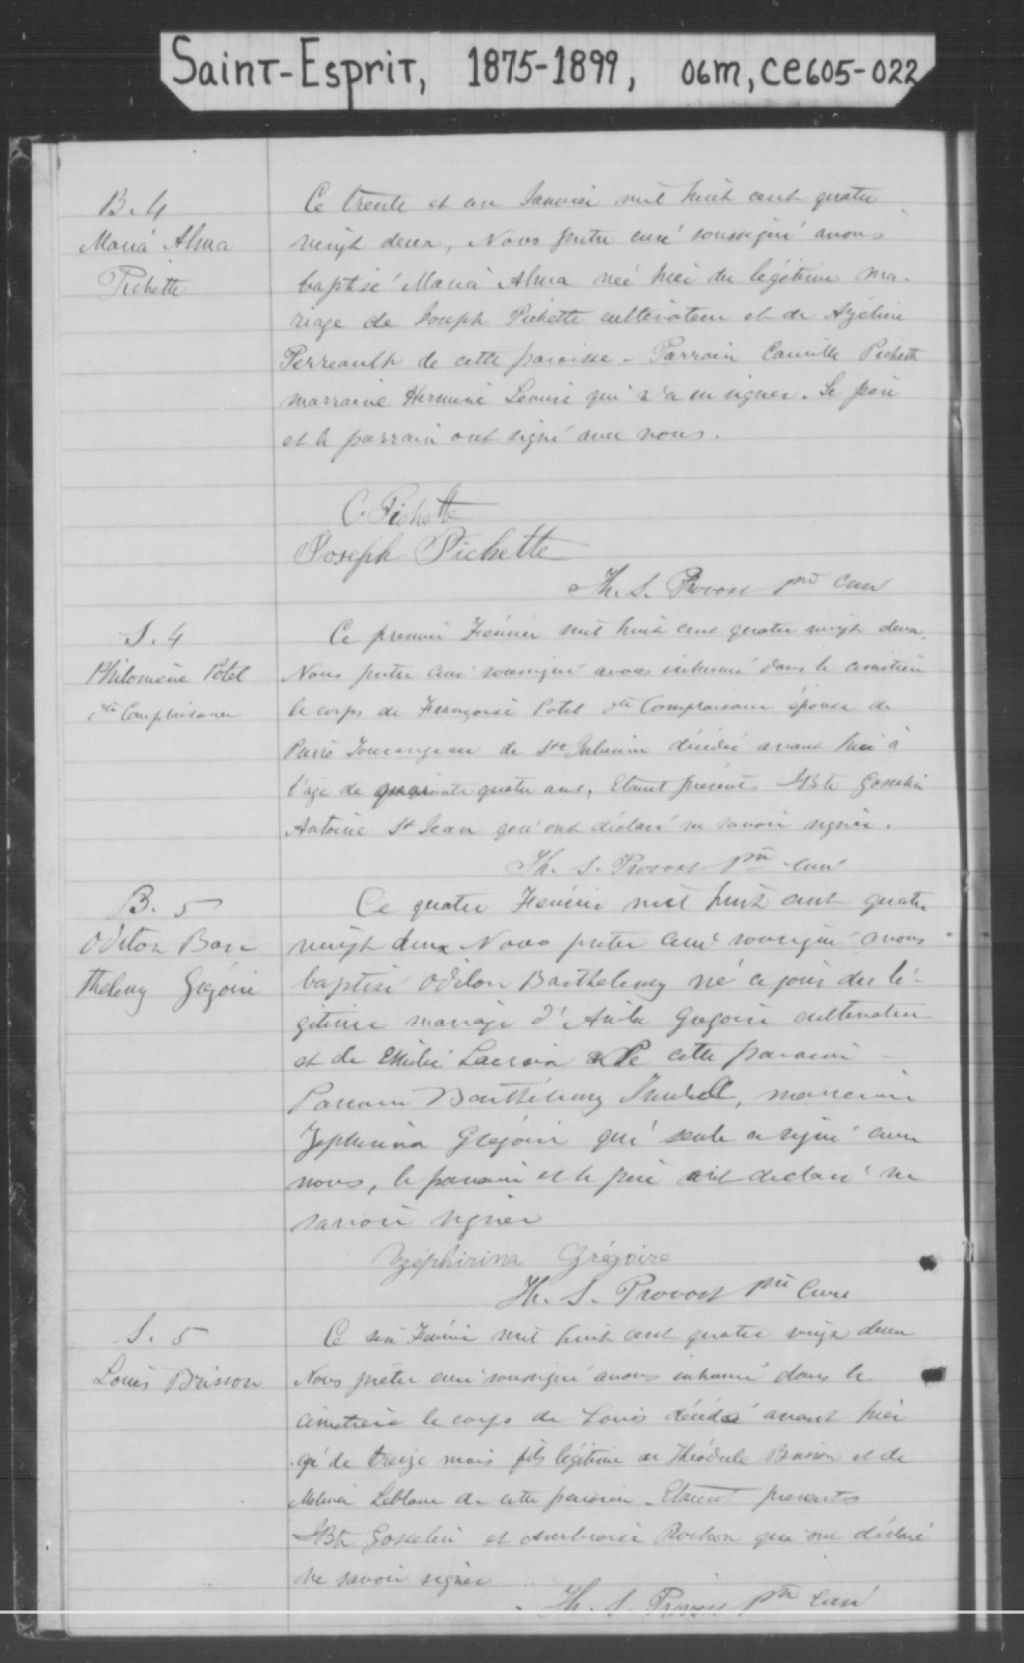 Saint-Esprit, 1875-1899, 06m, CE605-022
B. 4
Maria Alma
Pichette
Ce trente et un Janvier mil huit cent quatre
vingt deux, Nous prêtre curé soussigné avons
baptisé Maria Alma née hier du légitime ma-
riage de Joseph Pichette cultivateur et de Azéline
Perreault de cette paroisse - Parrain Camille Pichette
marraine Hermine qui n'a su signer. Le père
et le parrain ont signé avec nous.
C. Pichette
Joseph Pichette
Th. S. Provost ptre Curé
S. 4
Philomène Potel
dte Complaisance
Ce premier Février mil huit cent quatre vingt deux,
Nous prêtre curé soussigné avons inhumé dans le cimetière
le corps de Françoise Potel dte Complaisance épouse de
Pierre Tourangeau de Ste Julienne décédée avant hier à
l'âge de quatre ans. Etaient présents JBte Gosselin
Antoine St Jean qui ont déclaré ne savoir signer.
Th. S. Provost ptre curé
B. 5
Odilon Bar
thelemy Grégoire
Ce quatre Février mil huit cent quatre
vingt deux Nous prêtre curé soussigné avons
baptisé Odilon Barthelemy né ce jour du lé-
gitime mariage d' Grégoire cultivateur
et de Emilie Lacroix de cette paroisse -
Parrain Barthélemy, marraine
Zephirina Grégoire qui seule a signé avec
nous, le parrain et le père ont déclaré ne
savoir signer
Zéphirina Grégoire
Th. S. Provost ptre Curé
S. 5
Louis Brisson
Ce six Février mil huit cent quatre vingt deux
Nous prêtre curé soussigné avons inhumé dans le
cimetière le corps de Louis décédé avant hier
âgé de treize mois fils légitime de Théodule Brisson et de
Melina Leblanc de cette paroisse - Etaient présents
JBte Gosselin et Ambroise Rochon qui ont déclaré
ne savoir signer
Th. S. Provost ptre curé